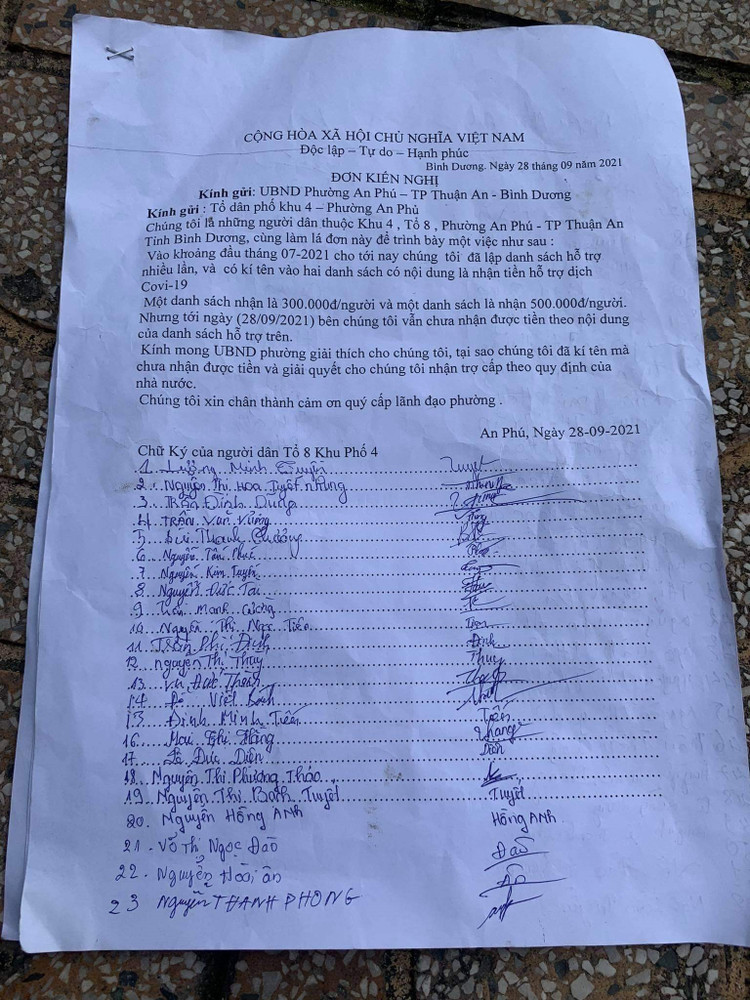 CỘNG HÒA XÃ HỘI CHỦ NGHĨA VIỆT NAM
Độc lập – Tự do – Hạnh phúc
Bình Dương. Ngày 28 tháng 09 năm 2021
ĐƠN KIẾN NGHỊ
Kính gửi: UBND Phường An Phú – TP Thuận An - Bình Dương
Kính gửi : Tổ dân phố khu 4 – Phường An Phú
Chúng tôi là những người dân thuộc Khu 4 , Tổ 8 , Phường An Phú - TP Thuận An
Tỉnh Bình Dương, cùng làm lá đơn này để trình bày một việc như sau :
Vào khoảng đầu tháng 07-2021 cho tới nay chúng tôi đã lập danh sách hỗ trợ
nhiều lần, và có kí tên vào hai danh sách có nội dung là nhận tiền hỗ trợ dịch
Covi-19
Một danh sách nhận là 300.000đ/người và một danh sách là nhận 500.000đ/người.
Nhưng tới ngày (28/09/2021) bên chúng tôi vẫn chưa nhận được tiền theo nội dung
của danh sách hỗ trợ trên.
Kính mong UBND phường giải thích cho chúng tôi, tại sao chúng tôi đã kí tên mà
chưa nhận được tiền và giải quyết cho chúng tôi nhận trợ cấp theo quy định của
nhà nước.
Chúng tôi xin chân thành cảm ơn quý cấp lãnh đạo phường .
An Phú, Ngày 28-09-2021
Chữ Ký của người dân Tổ 8 Khu Phố 4
1. Minh
2. Nguyễn Thị Hoa Tuyết Nhung
3. Trần Đình Dung
4. TRẦN Văn Vững
5. Bùi Thanh
6. Nguyễn Tấn
7. Nguyễn Kim Tuyến
8. Nguyễn Đức Tài
9. Mạnh Cường
10. Nguyễn Thị Ngọc
11. Trần Phi Định Định
12. Nguyễn Thị Thủy Thủy
13. Vũ Đức
14. Viết
15. Đinh Minh Tiến Tiến
16. Mai Thị Hằng Hằng
17. Diễn Diễn
18. Nguyễn Thị Phương Thảo
19. Nguyễn Thị Bạch Tuyết Tuyết
20. Nguyễn Hồng ANH Hồng ANH
21. Võ Thị Ngọc Đào Đào
22. Nguyễn Hoài ân Ân
23 Nguyễn THANH PHONG